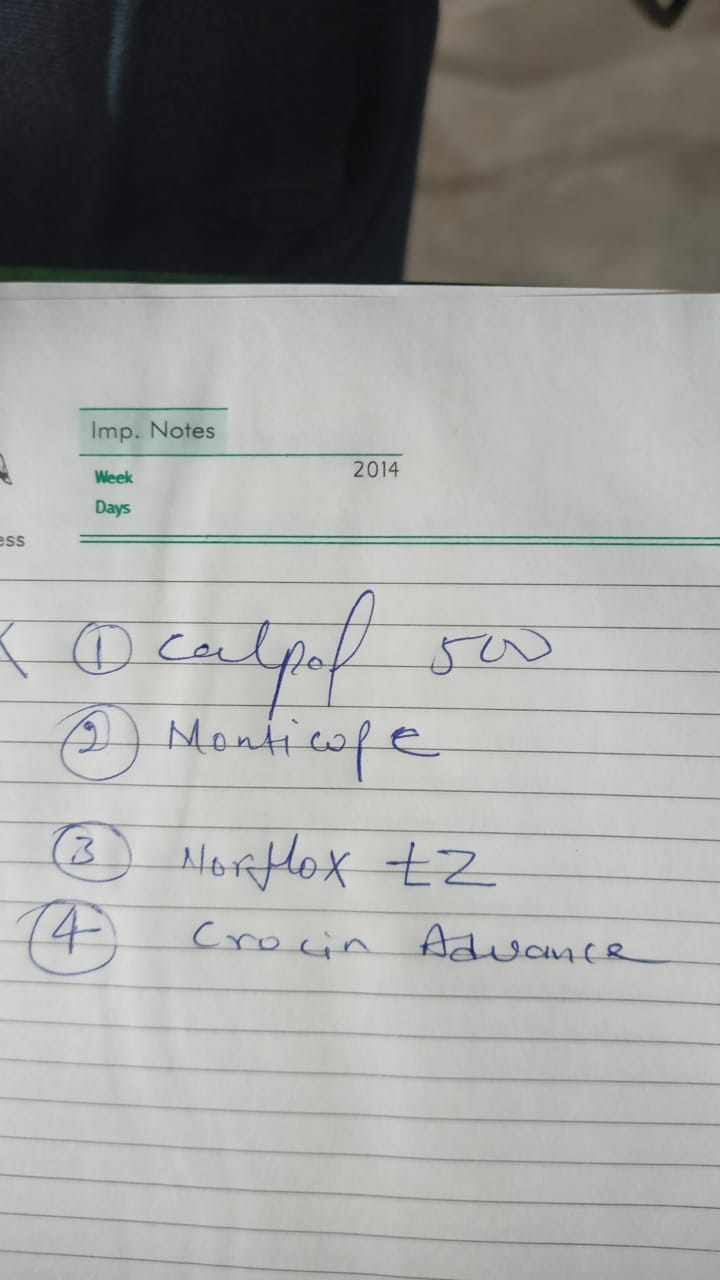 Imp. Notes
Week 2014
Days
ess
① Calpol 500
② Monticope
③ Norflox tz
④ Crocin Advance